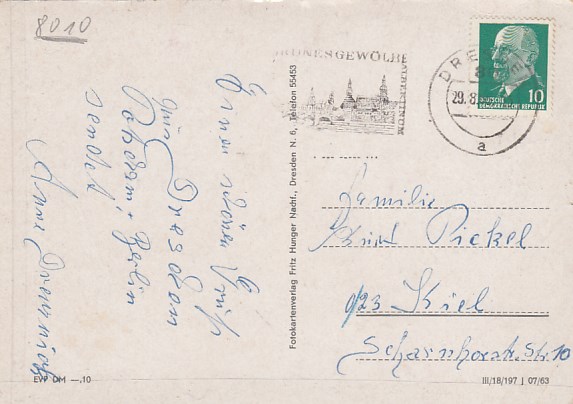 8010
GRÜNES GEWÖLBE
DRESDEN
29.8.
a
DEUTSCHE
DEMOKRATISCHE REPUBLIK
10
Einen schönen Gruß
aus Dresden
Potsdam, Berlin
sendet
Anne
Familie
Kurt Pickel
023 Kiel
Scharnhorststr. 10
Fotokartenverlag Fritz Hunger Nachf., Dresden N. 6, Telefon 55453
EVP DM —.10
III/18/197 J 07/63